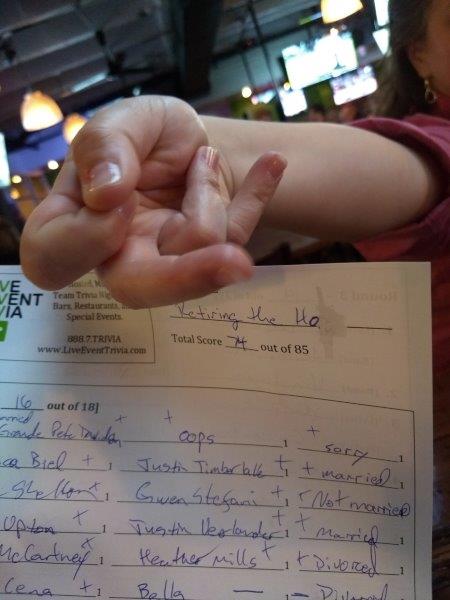 VE
EVENT
VIA
Team Trivia Nig
Bars, Restaurants,
Special Events.
888.7.TRIVIA
www.LiveEventTrivia.com
Retiring the Ho
Total Score 74 out of 85
16 out of 18]
Grande Pete Davidson + oops 1 + sorry 1
ca Biel + 1 Justin Timberlake + 1 + married 1
Shelton x 1 Gwen Stefani + 1 + Not married
Upton x 1 Justin Verlander + 1 + Married 1
McCartney x 1 Heather Mills + 1 + Divorced 1
Cena + 1 Bella — 1 — Divorced